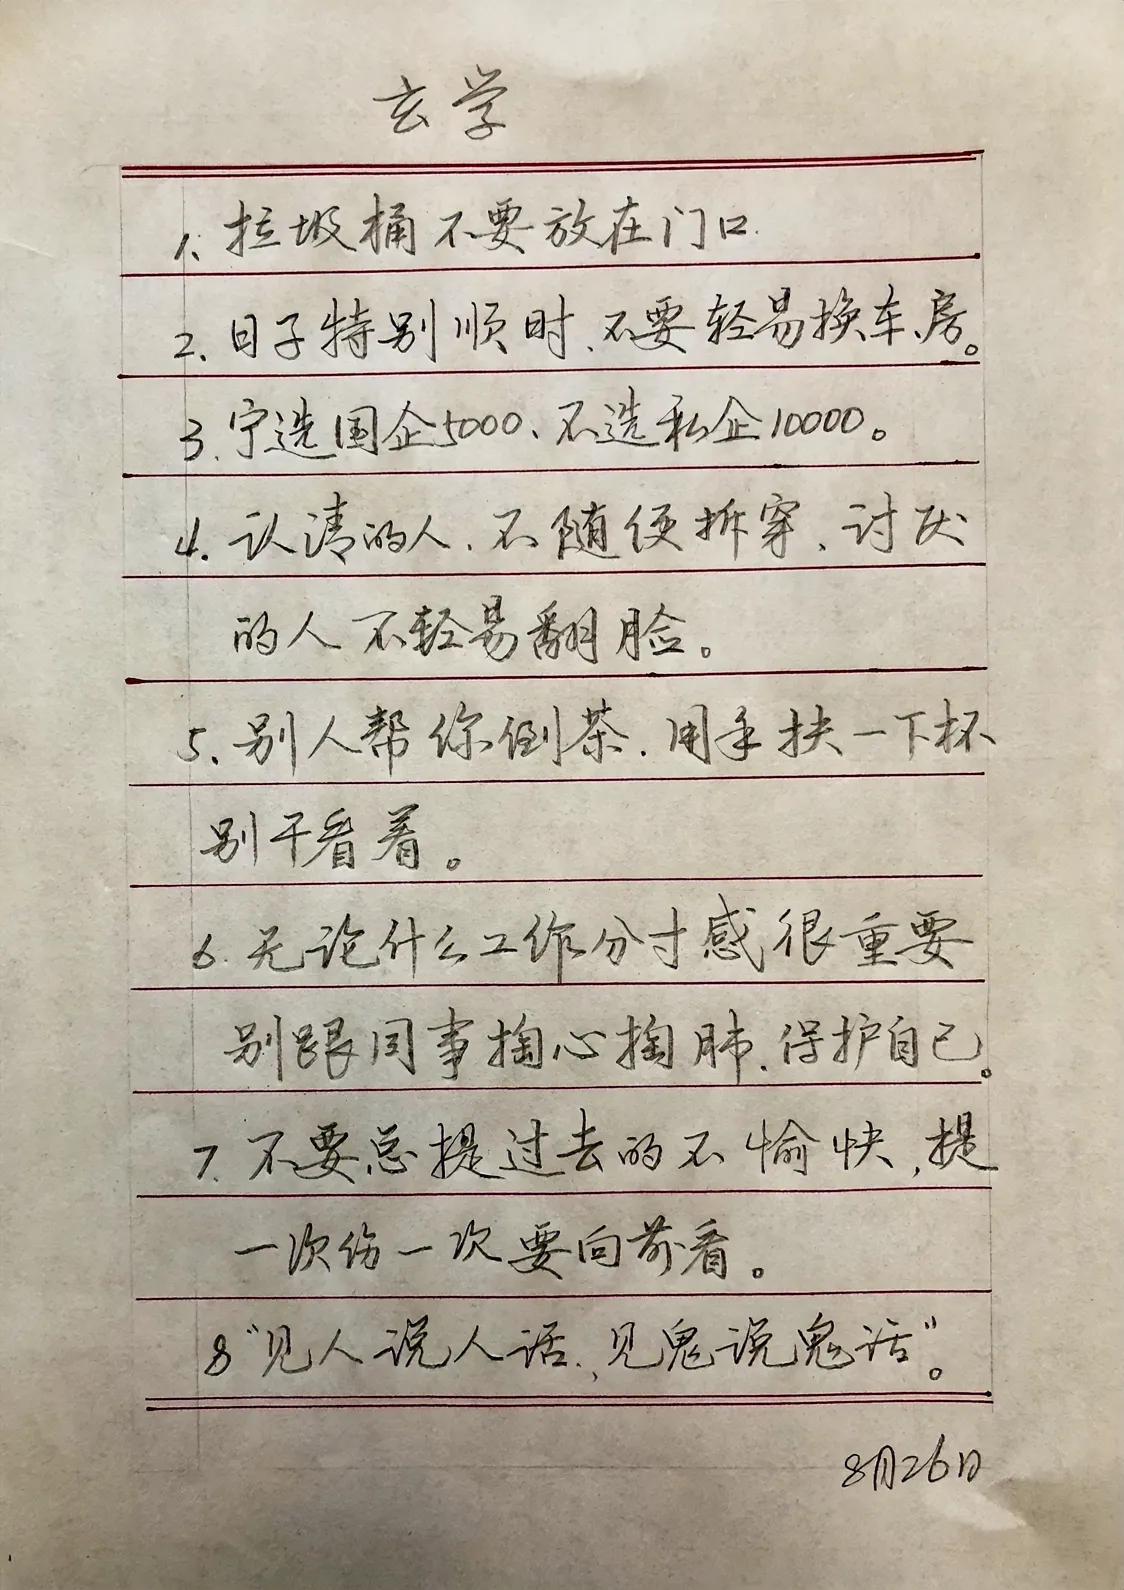 玄学
1、垃圾桶不要放在门口.
2、日子特别顺时、不要轻易换车、房。
3、宁选国企5000、不选私企10000。
4、认清的人、不随便拆穿、讨厌
的人不轻易翻脸。
5、别人帮你倒茶、用手扶一下杯
别干看着。
6、无论什么工作分寸感很重要
别跟同事掏心掏肺、保护自己。
7、不要总提过去的不愉快,提
一次伤一次要向前看。
8“见人说人话、见鬼说鬼话”。
8月26日